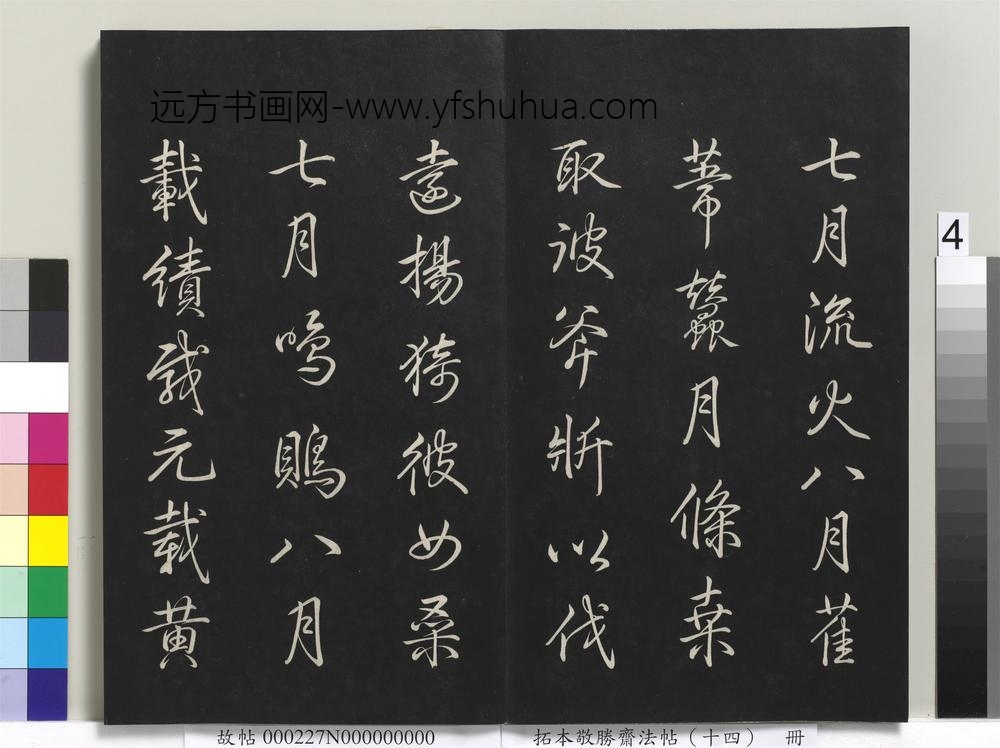 远方书画网-www.yfshuhua.com
七月流火八月萑
葦蠶月條桒
取彼斧斨以伐
遠揚猗彼女桑
七月鳴鵙八月
載績載元載黄
4
故帖 000227N000000000
拓本敬勝齋法帖（十四） 冊